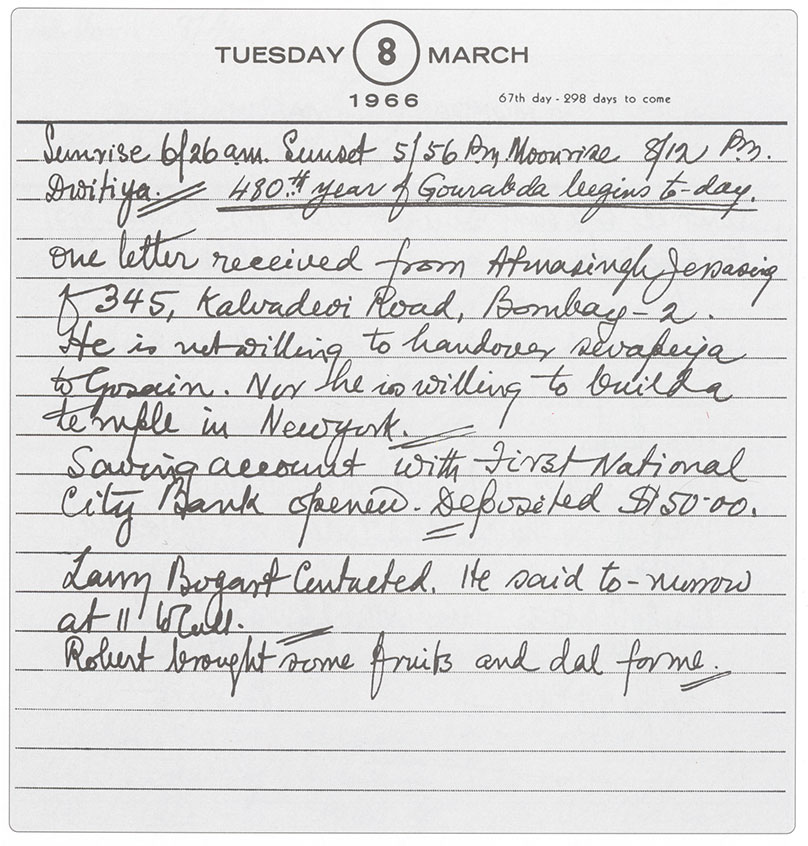 TUESDAY 8 MARCH
1966 67th day - 298 days to come
Sunrise 6/26 am. Sunset 5/56 Pm Moonrise 8/12 Pm.
Dwitiya. 480th year of Gourabda begins to-day.
One letter received from Atmasingh Jessasing
of 345, Kalvadevi Road, Bombay-2.
He is not willing to handover sevapeiya
to Gosain. Nor he is willing to build a
temple in Newyork.
Saving account with First National
City Bank opened. Deposited $150.00.
Larry Bogart Contacted. He said to-morrow
at 11 O'Clock.
Robert brought some fruits and dal for me.